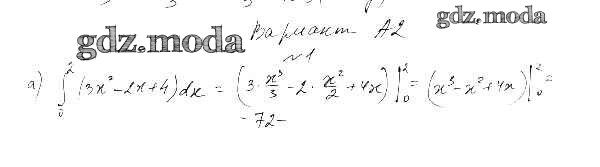 gdz.moda
Вариант А2
gdz.moda
№1
а) ∫₀² (3x² - 2x + 4) dx = (3 · x³/3 - 2 · x²/2 + 4x) |₀² = (x³ - x² + 4x) |₀² =
- 72 -